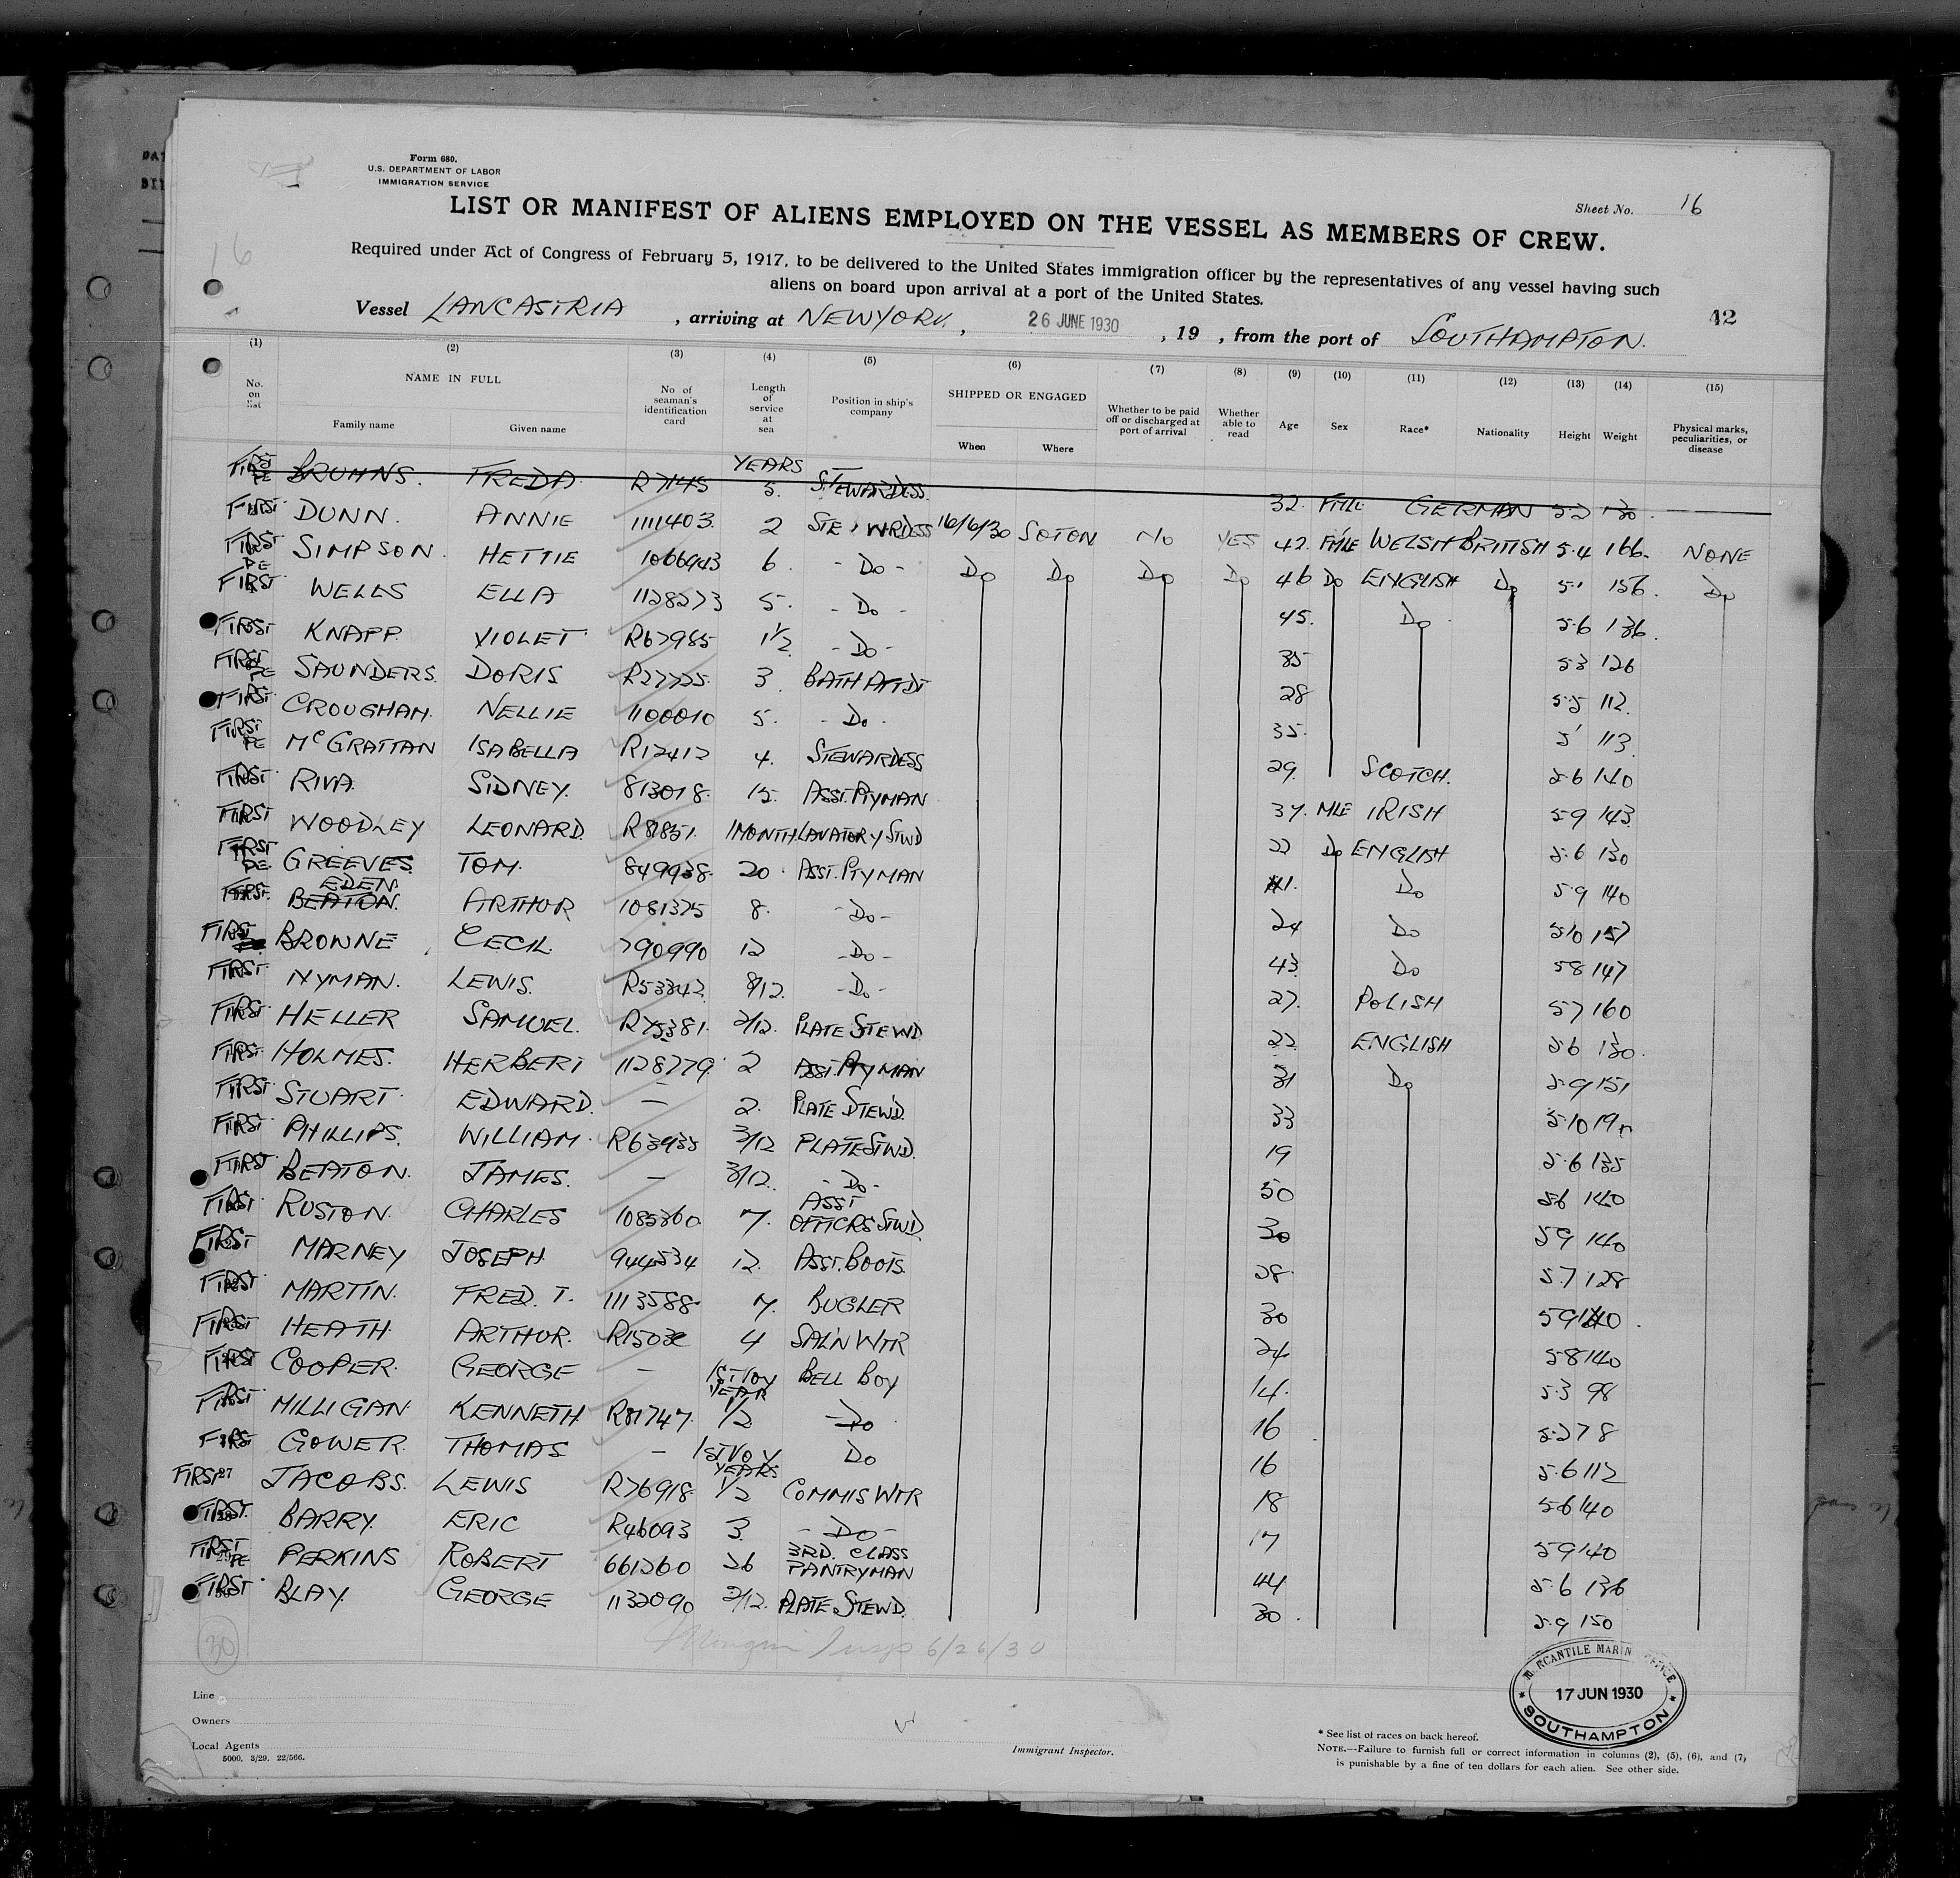 Form 680.
U.S. DEPARTMENT OF LABOR
IMMIGRATION SERVICE
Sheet No. 16
LIST OR MANIFEST OF ALIENS EMPLOYED ON THE VESSEL AS MEMBERS OF CREW.
16
Required under Act of Congress of February 5, 1917, to be delivered to the United States immigration officer by the representatives of any vessel having such
aliens on board upon arrival at a port of the United States.
42
Vessel LANCASTRIA , arriving at NEWYORK , 26 JUNE 1930 , 19 , from the port of SOUTHAMPTON.
(1) (2) (3) (4) (5) (6) (7) (8) (9) (10) (11) (12) (13) (14) (15)
No. on list NAME IN FULL Family name Given name No of seaman's identification card Length of service at sea Position in ship's company SHIPPED OR ENGAGED When Where Whether to be paid off or discharged at port of arrival Whether able to read Age Sex Race* Nationality Height Weight Physical marks, peculiarities, or disease
YEARS
FIRST PE BRUHNS. FREDA R7145 5. STEWARDESS. 32. FMLE GERMAN 5.2 130
FIRST DUNN. ANNIE 1111403. 2 STEWRDESS 16/6/30 SOTON NO YES 42. FMLE WELSH BRITISH 5.4 166. NONE
FIRST PE SIMPSON. HETTIE 1066943 6. - Do - Do Do Do Do 46 Do ENGLISH Do 5.1 156. Do
FIRST WELLS ELLA 1128273 5. - Do - 45. Do 5.6 136.
FIRST KNAPP. VIOLET R67985 1 1/2 - Do - 35 5.3 126
FIRST PE SAUNDERS. DORIS R27725. 3. BATH ATTDT 28 5.5 112.
FIRST CROUGHAM. NELLIE 1100010 5. - Do - 35. 5' 113
FIRST PE McGRATTAN ISABELLA R12412 4. STEWARDESS 29. SCOTCH. 5.6 140
FIRST RIVA. SIDNEY. 813018. 15. ASST. PTYMAN 37. MLE IRISH 5.9 143.
FIRST WOODLEY LEONARD. R81851. 1MONTH LAVATORY STWD 22 Do ENGLISH 5.6 130
FIRST PE. GREEVES. TOM. 849938. 20. ASST. PTYMAN 41. Do 5.9 140
EDEN.
FIRST. BEATON. ARTHUR 1081375 8. - Do - 24 Do 5.10 157
FIRST BROWNE CECIL. 790990 12 - Do - 43. Do 5.8 147
FIRST. NYMAN. LEWIS. R53342. 8/12. - Do - 27. POLISH 5.7 160
FIRST HELLER SAMUEL. R75381. 2/12. PLATE STEWD 22. ENGLISH 5.6 130.
FIRST. HOLMES. HERBERT 1128779. 2 ASST. PTYMAN 31 Do 5.9 151
FIRST STUART. EDWARD. — 2. PLATE STEWD. 33 5.10
FIRST PHILLIPS. WILLIAM. R63935 3/12 PLATE STWD. 19 5.6 135
FIRST BEATON. JAMES. — 3/12. - Do - 50 5.6 140
FIRST RUSTON. CHARLES 1085360 7. ASST OFFICRS STWD. 30 5.9 140
FIRST MARNEY JOSEPH 944534 12. ASST. BOOTS. 28. 5.7 128
FIRST MARTIN. FRED. T. 1113588. 7. BUGLER 30 5.9 140.
FIRST HEATH. ARTHUR. 4 SAL'N WTR 24 5.8 140
FIRST COOPER. GEORGE — 1ST VOY BELL BOY 14. 5.3 98
YEAR
FIRST MILLIGAN KENNETH R81747. 1/2. - Do 16 5.2 78
FIRST GOWER. THOMAS — 1ST VOY Do 16 5.6 112
YEARS
FIRST 27 JACOBS. LEWIS R76918. 1/2 COMMIS WTR 18 5.6 140
FIRST. BARRY. ERIC R46093 3. - Do - 17 5.9 140
FIRST PE PERKINS ROBERT 661260 26 3RD. CLASS PANTRYMAN 44 5.6 136
FIRST BLAY. GEORGE 1132090 2/12. PLATE STEWD. 30. 5.9 150
30
6/26/30
MERCANTILE MARINE OFFICE
17 JUN 1930
SOUTHAMPTON
Line
Owners
Local Agents
5000. 3/29. 22/566.
Immigrant Inspector.
* See list of races on back hereof.
NOTE.—Failure to furnish full or correct information in columns (2), (5), (6), and (7),
is punishable by a fine of ten dollars for each alien. See other side.